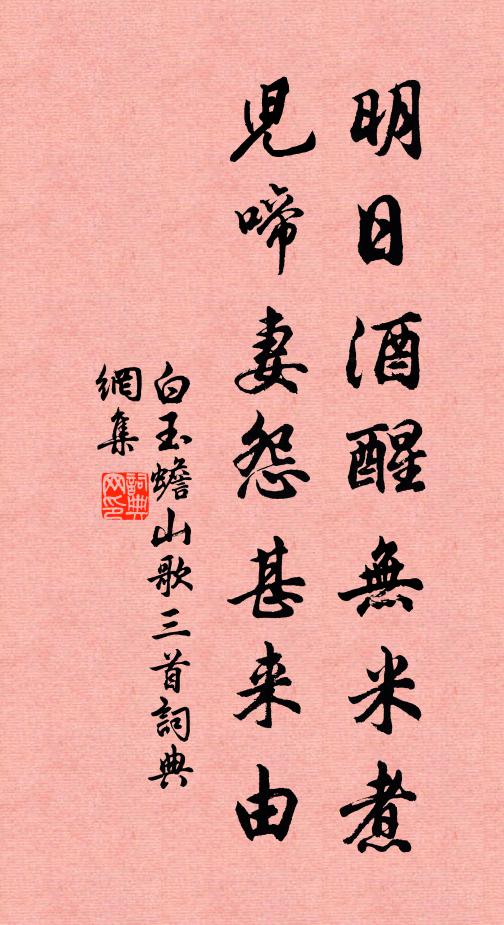 明日酒醒無米煮
兒啼妻怨甚来由
白玉蟾山歌三首詞典
網集
詞典网印